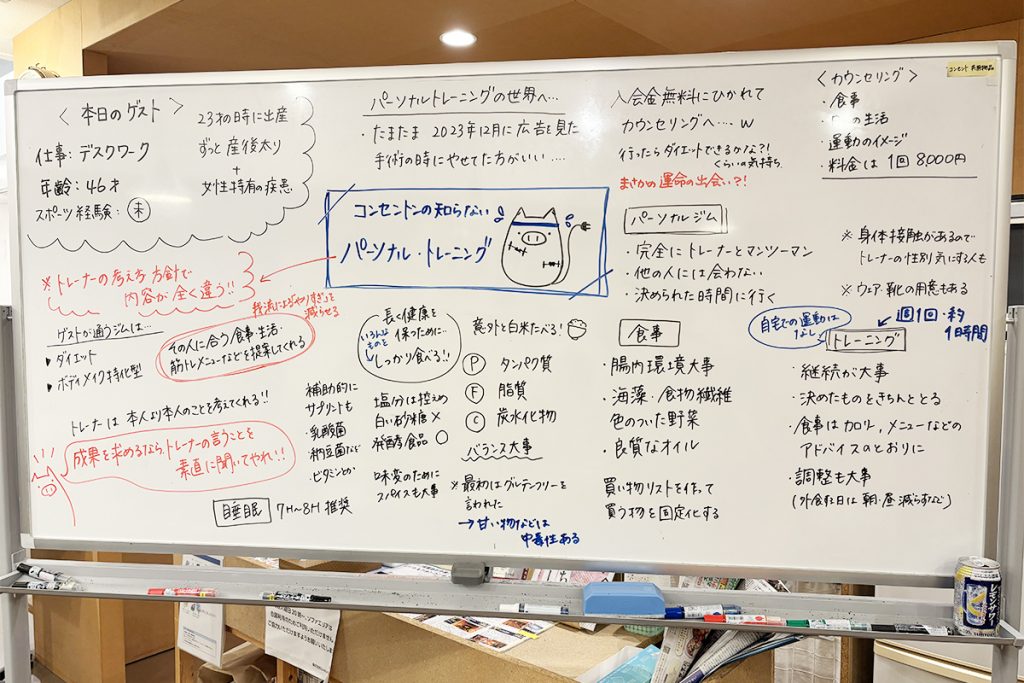 〈 本日のゲスト 〉
仕事: デスクワーク
年齢: 46才
スポーツ経験: 未
23才の時に出産
ずっと産後太り
+
女性特有の疾患
パーソナルトレーニングの世界へ…
・たまたま 2023年12月に広告を見た
手術の時にやせてた方がいい ....
入会金無料にひかれて
カウンセリングへ… w
行ったらダイエットできるかな?!
くらいの気持ち.
まさかの運命の出会い?!
〈カウンセリング〉
・食事
の生活
・運動のイメージ
・料金は 1回 8000円
コンセントンの知らない
パーソナル・トレーニング
※トレーナーの考え方 方針で
内容が全く違う!!
我流による"やりすぎ"を
減らせる
ゲストが通うジムは…
▶ ダイエット
▶ ボディメイク特化型
その人に合う食事・生活・
筋トレメニューなどを提案してくれる
トレーナーは 本人より本人のことを考えてくれる!!
成果を求めるなら、トレーナーの言うことを
素直に聞いてやれ!!
睡眠 7H~8H 推奨
補助的に
サプリントも
・乳酸菌
・納豆菌など
・ビタミンとか
長く健康を
保つために…
いろんな
ものを
しっかり食べる!!
塩分は控えめ
白い砂糖 ×
発酵食品 ○
味変のために
スパイスも大事
意外と白米たべる!
P タンパク質
F 脂質
C 炭水化物
バランス大事
※ 最初はグルテンフリーを
言われた
→ 甘い物などは
中毒性ある
パーソナルジム
・完全にトレーナーとマンツーマン
・他の人には会わない
・決められた時間に行く
※ 身体接触があるので
トレーナーの性別気にする人も
※ ウェア・靴の用意もある
食事
・腸内環境大事
・海藻・食物繊維
色のついた野菜
・良質なオイル
買い物リストを作って
買う物を固定化する
自宅での運動は
なし
週1回・約
1時間
トレーニング
・継続が大事
・決めたものをきちんととる
・食事はカロリー,メニューなどの
アドバイスのとおりに
・調整も大事
(外食した日は 朝・昼 減らすなど)
レモンサワー